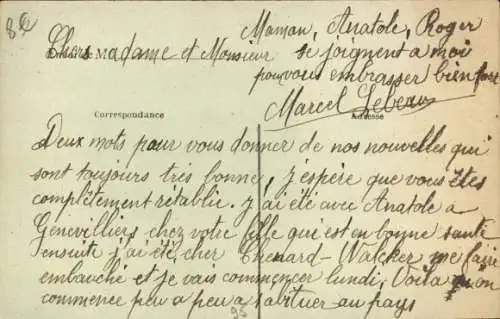 8e
Maman, Anatole, Roger
Chers madame et Monsieur se joignent a moi
pour vous embrasser bien fort
Marcel Lebeau
Correspondance Adresse
Deux mots pour vous donner de nos nouvelles qui
sont toujours très bonne, j'espère que vous êtes
complètement rétablie. J'ai été avec Anatole a
Genevilliers chez votre fille qui est en bonne santé
ensuite j'ai été cher Chenard-Walcker me faire
embauché et je vais commencer lundi. Voila qu'on
commence peu a peu a s'abituer au pays
95